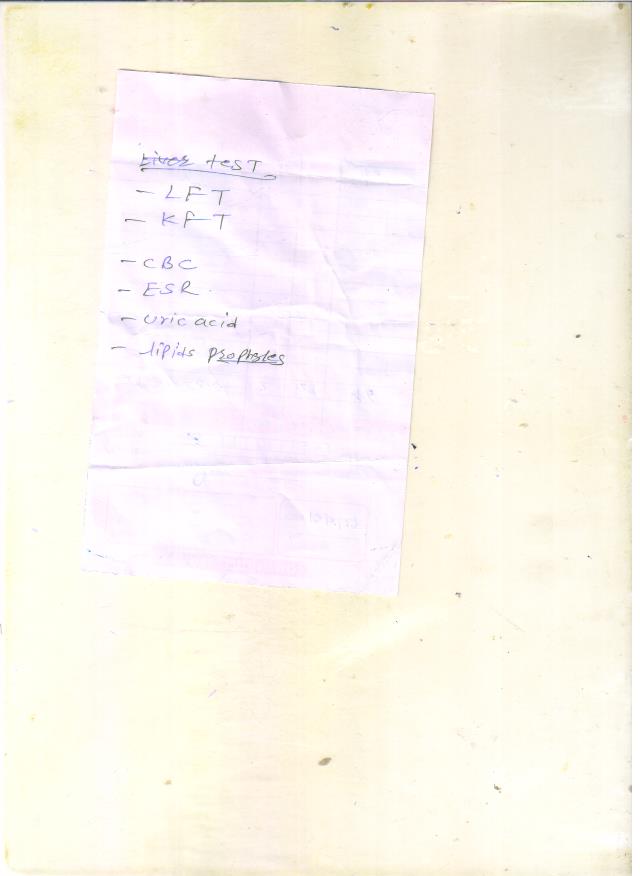 Liver test
- LFT
- KFT
- CBC
- ESR
- uric acid
- lipids prophales